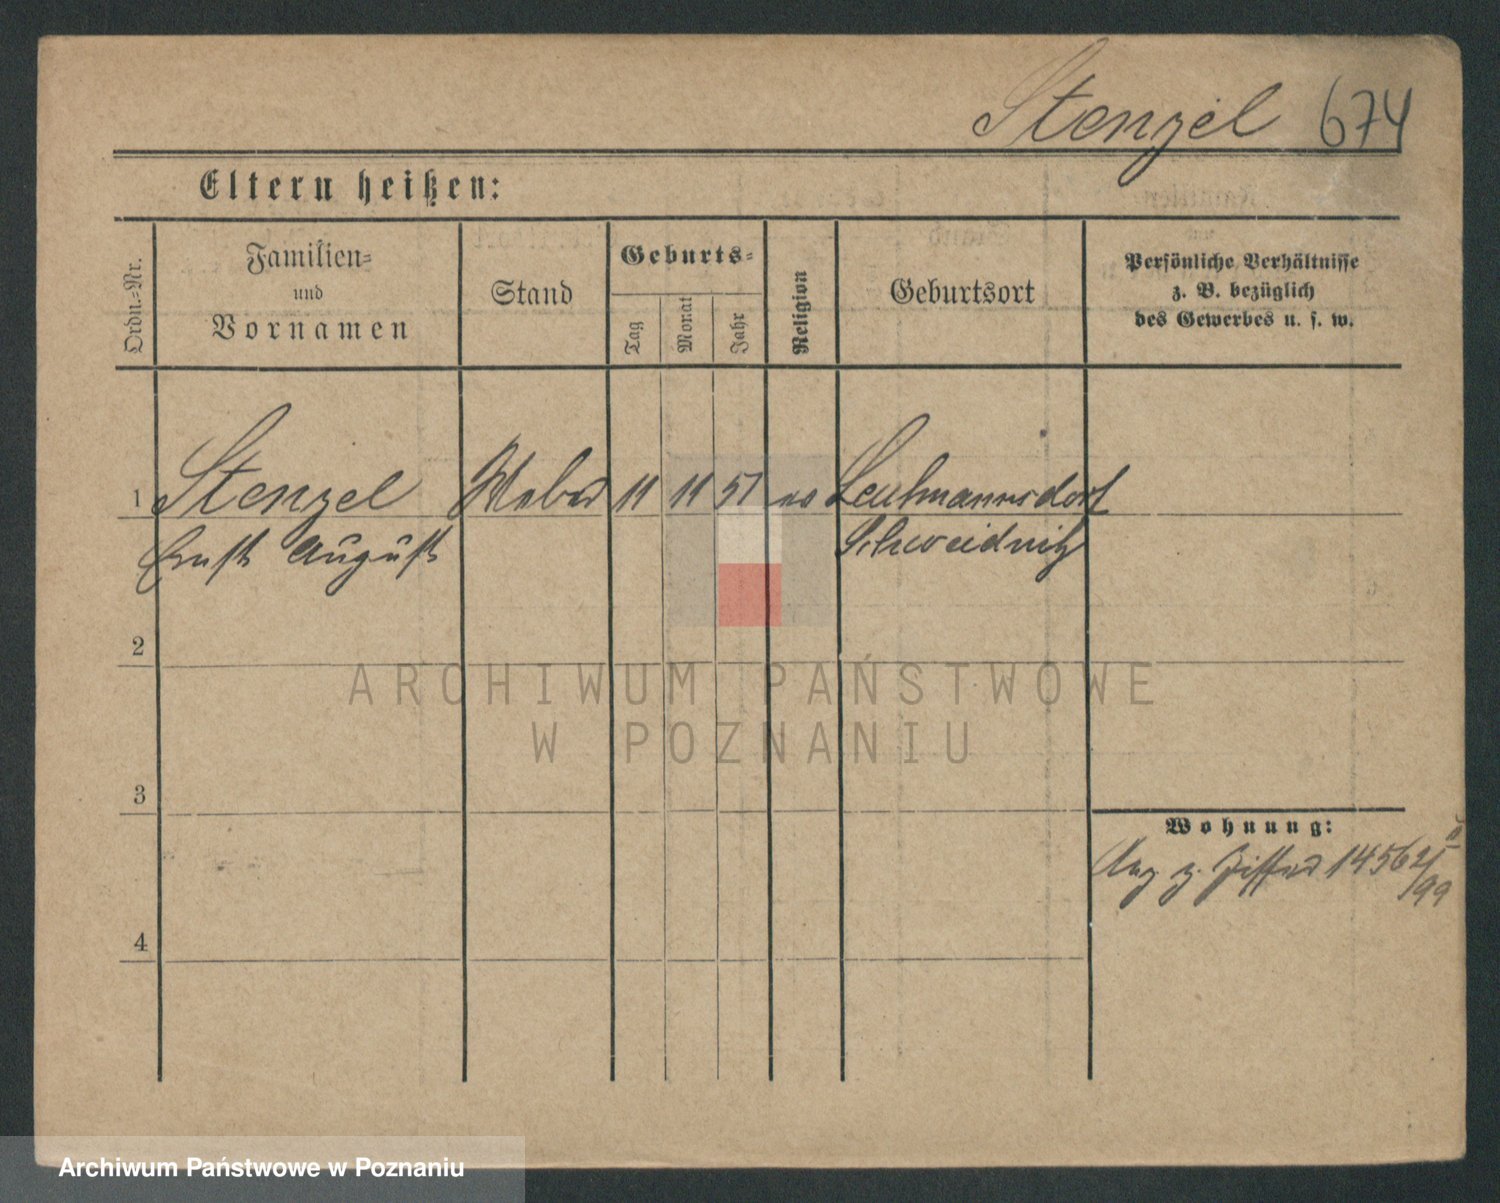 Stenzel 674
Eltern heißen:
Ordn.-Nr.
Familien-
und
Vornamen
Stand
Geburts-
Tag
Monat
Jahr
Religion
Geburtsort
Persönliche Verhältnisse
z. B. bezüglich
des Gewerbes u. s. w.
1 Stenzel Weber 11 11 57 ev Leutmannsdorf
Ernst August Schweidnitz
2
3
4
Wohnung:
Anz. z. Ziffer 14562/99 II
ARCHIWUM PAŃSTWOWE
W POZNANIU
Archiwum Państwowe w Poznaniu